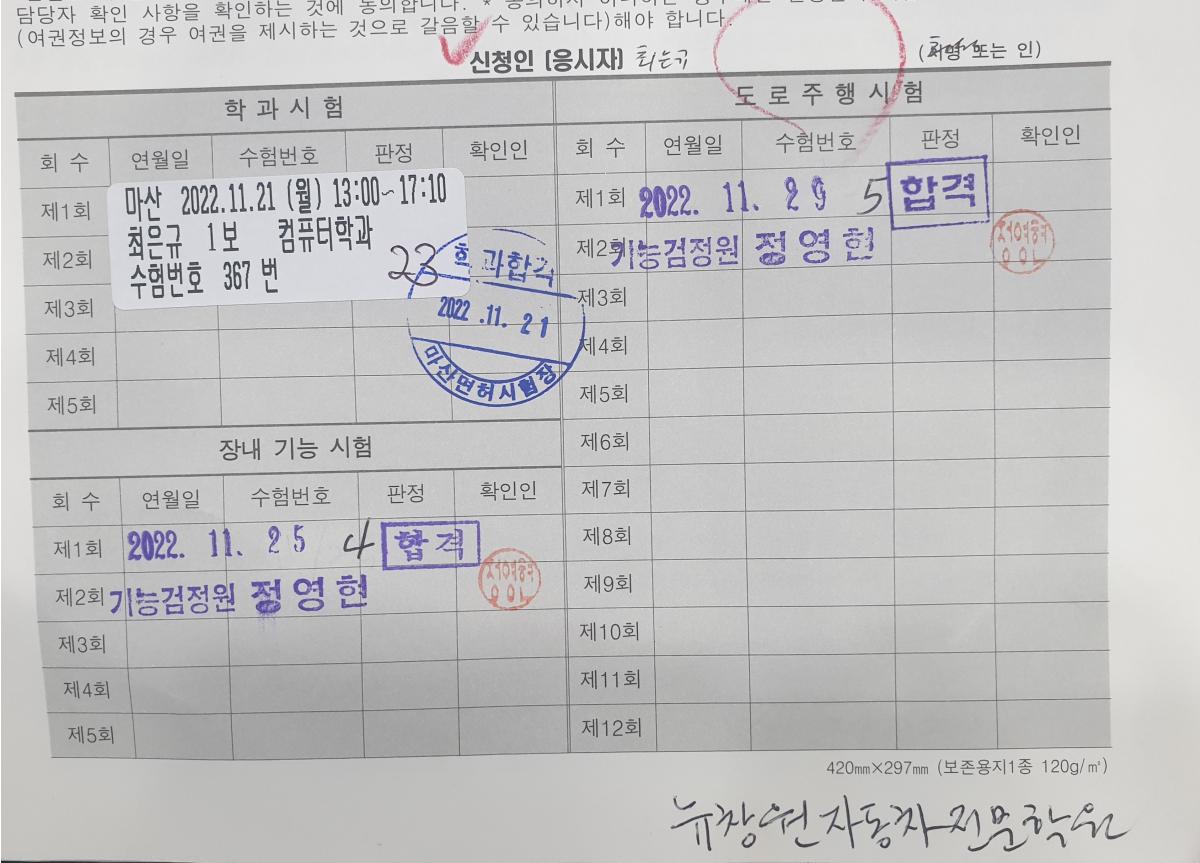 담당자 확인 사항을 확인하는 것에 동의합니다.
(여권정보의 경우 여권을 제시하는 것으로 갈음할 수 있습니다)해야 합니다.
신청인 (응시자) 최은규 (서명 또는 인)
학 과 시 험
회 수 연월일 수험번호 판정 확인인
제1회
제2회
제3회
제4회
제5회
마산 2022.11.21 (월) 13:00~17:10
최은규 1보 컴퓨터학과
수험번호 367 번
23
학과합격
2022 .11. 21
마산면허시험장
장내 기능 시험
회 수 연월일 수험번호 판정 확인인
제1회 2022. 11. 25 4 합격
제2회 기능검정원 정영현
제3회
제4회
제5회
도 로 주 행 시 험
회 수 연월일 수험번호 판정 확인인
제1회 2022. 11. 29 5 합격
제2회 기능검정원 정영현
제3회
제4회
제5회
제6회
제7회
제8회
제9회
제10회
제11회
제12회
420㎜×297㎜ (보존용지1종 120g/㎡)
뉴창원자동차전문학원